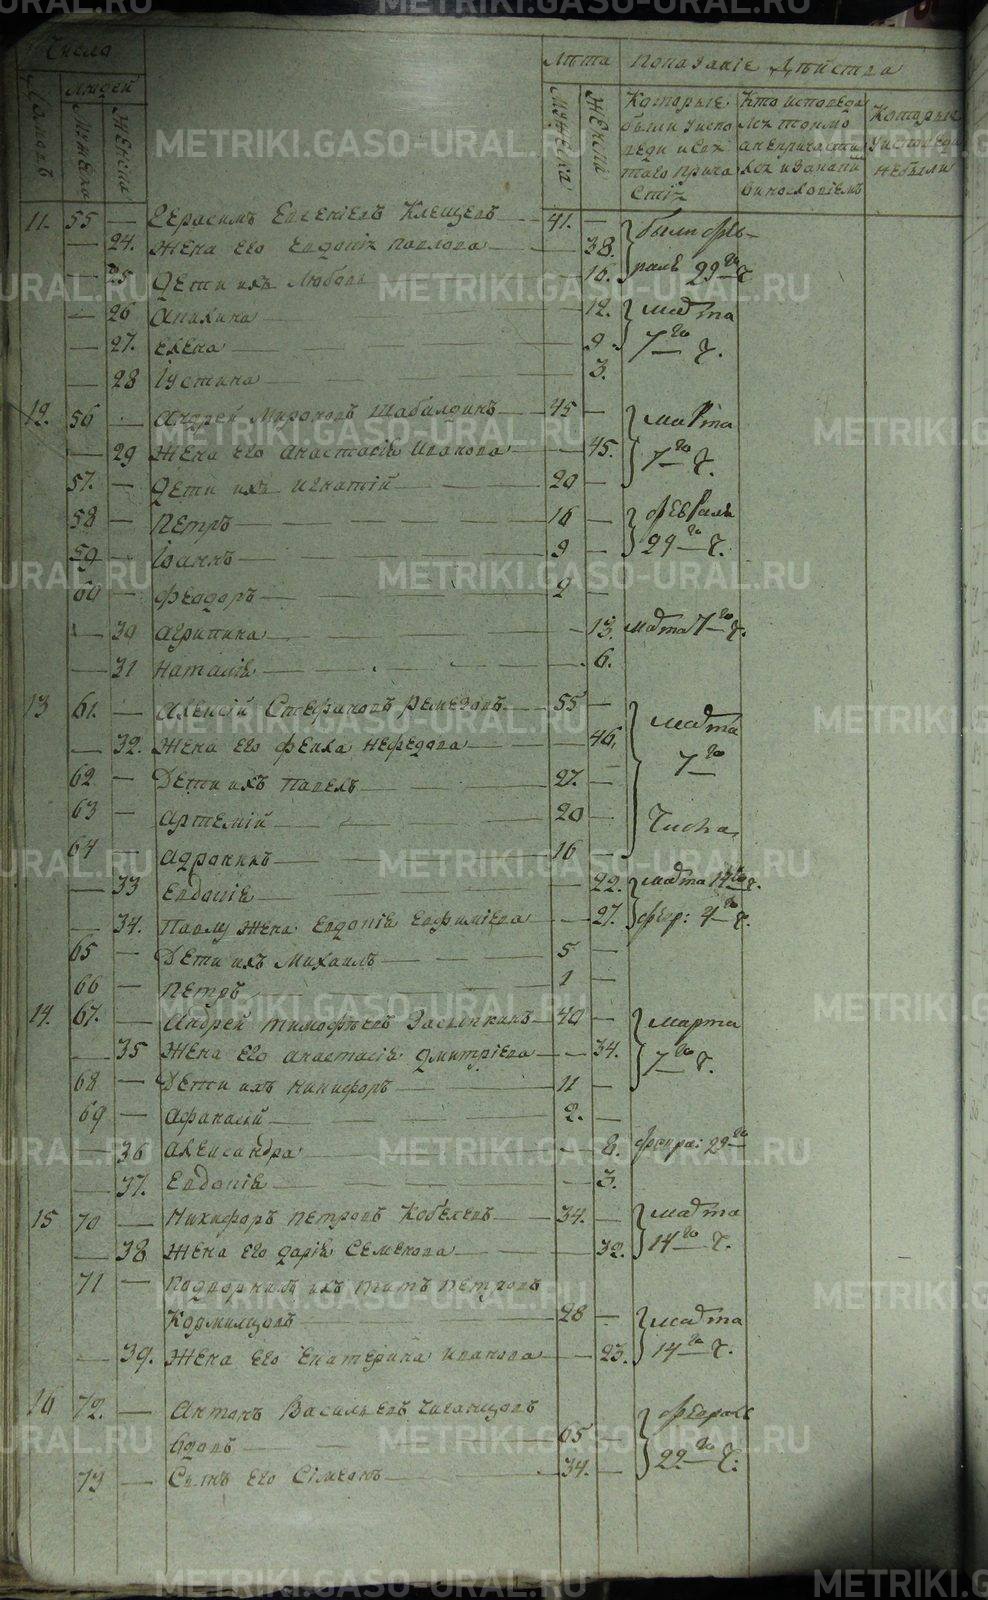 METRIKI.GASO-URAL.RU
Число
Лѣта Показаніе Дѣйства
Домовъ Людей Мужеска Женска
Мужеска Женска Которые были у исповеди и Свя таго Прича стія
Кто исповеда лся токмо а не причасти лся
Которые у исповеди не были
11. 55 — Герасимъ Евгеніевъ Клещевъ — 41. — были фев-
— 24. Жена его Евдокія Павлова — 38. ралѣ 22го Ч.
— 25 Дети ихъ Любовь — 16.
— 26 Акилина — 12. марта
— 27. Елена — 9. 7го Ч.
— 28 Іустина — 3.
12. 56 — Андрей Мироновъ Шабалдинъ — 45 — марта
— 29 Жена его Анастасія Иванова — 45. 7го Ч.
57. — Дети ихъ Игнатій — 20 —
58 — Петръ — 16 — Февраля
59 — Іоаннъ — 9 — 29го Ч.
60 — Феодоръ — 2 —
— 30 Агрипина — 13. марта 7го Ч.
— 31 Наталія — 6.
13 61. — Алексій Стефановъ Ремезовъ — 55 — марта
— 32. Жена его Фекла Нефедова — 46. 7го
62 — Дети ихъ Павелъ — 27. —
63 — Артемій — 20 — Числа
64 — Адроникъ — 16 —
— 33 Евдокія — 22. марта 14го Ч.
— 34. Павлу жена Евдокія Евфиміева — 27. февр:
65 — Дети ихъ Михаилъ — 5 —
66 — Петръ — 1 —
14. 67. — Андрей Тимофѣевъ Засыпкинъ — 40 — марта
— 35 Жена его Анастасія Дмитріева — 34. 7го Ч.
68 — Дети ихъ Никифоръ — 11 —
69 — Афанасій — 2. —
— 36 Александра — 8. февра: 29го
— 37. Евдокія — 3.
15 70 — Никифоръ Петровъ Кобелевъ — 34. — марта
— 38 Жена его Дарія Семенова — 32. 14го Ч.
71 — Подворникъ ихъ Титъ Петровъ
Кормильцовъ — 28 — марта
— 39. Жена его Екатерина Иванова — 23. 14го Ч.
16 72. — Антонъ Васильевъ
вдовъ — 65 — февраля
73 — Сынъ его Сімеонъ — 34. — 22го Ч.